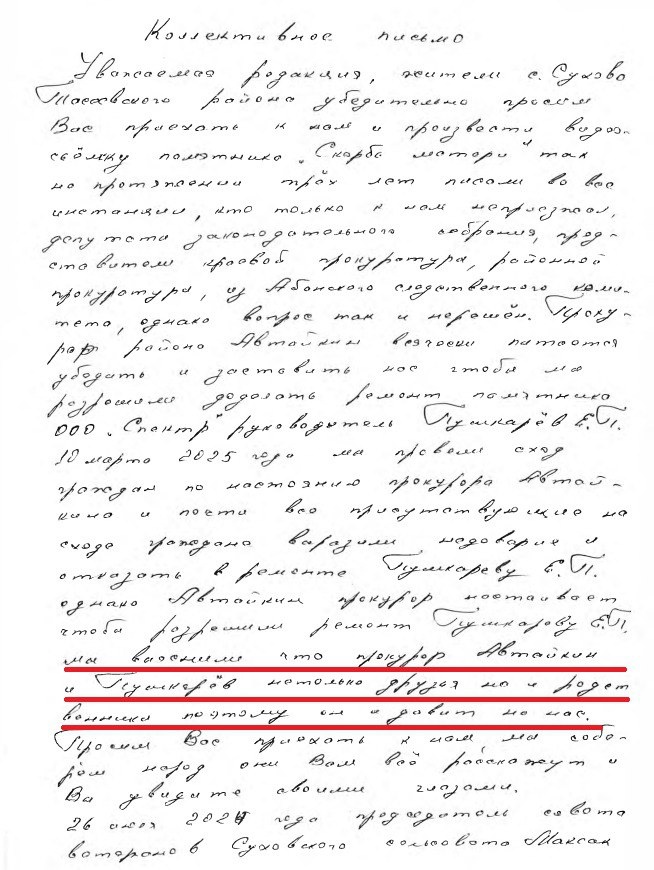 Коллективное письмо
Уважаемая редакция, жители с. Сухово
Тасеевского района убедительно просим
Вас приехать к нам и произвести видео-
съёмку памятника „Скорбь матери" так
на протяжении трёх лет писали во все
инстанции, кто только к нам неприезжал,
депутата законодательного собрания, пред-
ставители краевой прокуратура, районной
прокуратура, из Абанского следственного коми-
тета, однако вопрос так и нерешён. Проку-
рор района Автайкин всячески питается
убедить и заставить нас чтоба ма
разрешили доделать ремонт памятника
ООО „Спектр" руководитель Пушкарёв Е.П.
10 марта 2025 года ма провели сход
граждан по настоянию прокурора Автай-
кина и почти все присутствующие на
сходе граждана варазили недоверие и
отказать в ремонте Пушкареву Е.П.
однако Автайкин прокурор настаивает
чтоба разрешили ремонт Пушкарёву Е.П.
ма вааснили что прокурор Автайкин
и Пушкарёв нетолько друзья но и родст
венники поэтому он и давит на нас.
Просим Вас приехать к нам ма собе-
рём народ они Вам всё расскажут и
Ва увидите своими глазами.
26 года председатель совета
ветеранов Суховского сельсовета Максак